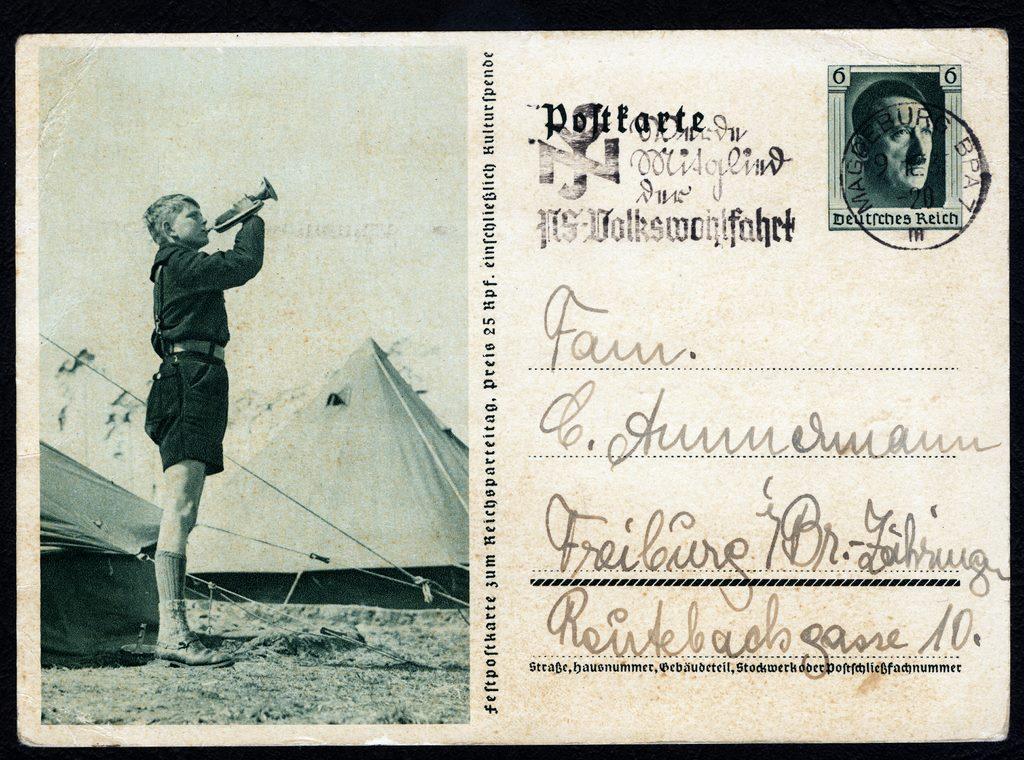 Festpostkarte zum Reichsparteitag, Preis 25 Rpf. einschließlich Kulturspende
Postkarte
Werde
Mitglied
der
NS-Volkswohlfahrt
6 6
Deutsches Reich
MAGDEBURG BPA 7
20
m
Fam.
C. Ammermann
Freiburg i/Br.-Zähringen
Reutebachgasse 10.
Straße, Hausnummer, Gebäudeteil, Stockwerk oder Postschließfachnummer